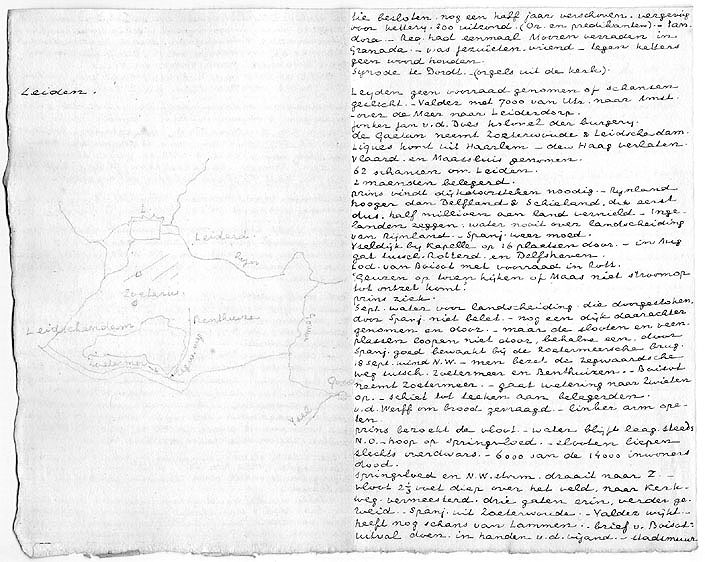 tie besloten, nog een half jaar verschoven. vergeving
voor kettery. 300 uitzond. (Or. en predikanten). Pan-
dora. - Req. had eenmaal Mooren verraden in
Granada. - was jezuïeten-vriend - tegen ketters
geen woord houden.
Synode te Dordt. - (orgels uit de kerk).
Leiden.
Leyden geen voorraad genomen of schansen
geslecht. - Valdez met 7000 van Utr. naar Amst.
- over de Meer naar Leiderdorp.
jonker Jan v.d. Does kolonel der burgery.
de Gaetan neemt Zoeterwoude & Leidschedam.
Liques komt uit Haarlem - den Haag verlaten.
Vlaard. en Maatsluis genomen.
62 schansen om Leiden.
2 maenden belegerd.
prins vindt dijkdoorsteken noodig. - Rynland
hooger dan Delfland & Schieland, dus eerst
dus. half millioen aan land vernield. - Inge-
landen zeggen: water nooit over landscheiding
van Rijnland. - Spanj. weer moed.
Yseldijk by Kapelle op 16 plaatsen door. - in Aug
gat tussch. Rotterd. en Delfshaven.
Lod. van Boisot met voorraad in Rott.
"Geuzen op toren kijken of Maas niet stroomop
tot ontzet komt."
prins ziek.
Sept. water voor landscheiding, die doorgestoken,
door Spanj. niet belet. - nog een dijk daarachter
genomen en door. - maar de slooten en veen-
plassen loopen niet door, behalve een, door
Spanj. goed bewaakt bij de Zoetermeersche brug.
18 sept. wind N.W. - men bezet de Zegwaardsche
weg tutsch. Zoetermeer en Benthuizen. - Boisot
neemt Zoetermeer. - gaat watering naar Zwieten
op. - schiet tot teeken aan belegerden.
v.d. Werff om brood gevraagd. - linker arm ope-
ten.
prins bezocht de vloot. - water blijft laag. steeds
N.O. - hoop op springvloed. - slooten liepen
slechts overdwars. - 6000 van de 14000 inwoners
dood.
Springvloed en N.W. storm. draait naar Z. -
vloot 2½ voet diep over het veld, naar Kerk-
weg. vermeesterd. drie gaten erin, verder ge-
weid. Spanj. uit Zoeterwoude. - Valdez wijkt -
heeft nog schans van Lammen. - brief v. Boisot:
uitval doen. in handen v.d. vijand. - stadsmuur
Leiderd.
Rijn
Zoeterw.
Leidschendam
Benthuize
Zoetermeer
Gouwe
Gouda
Ysel